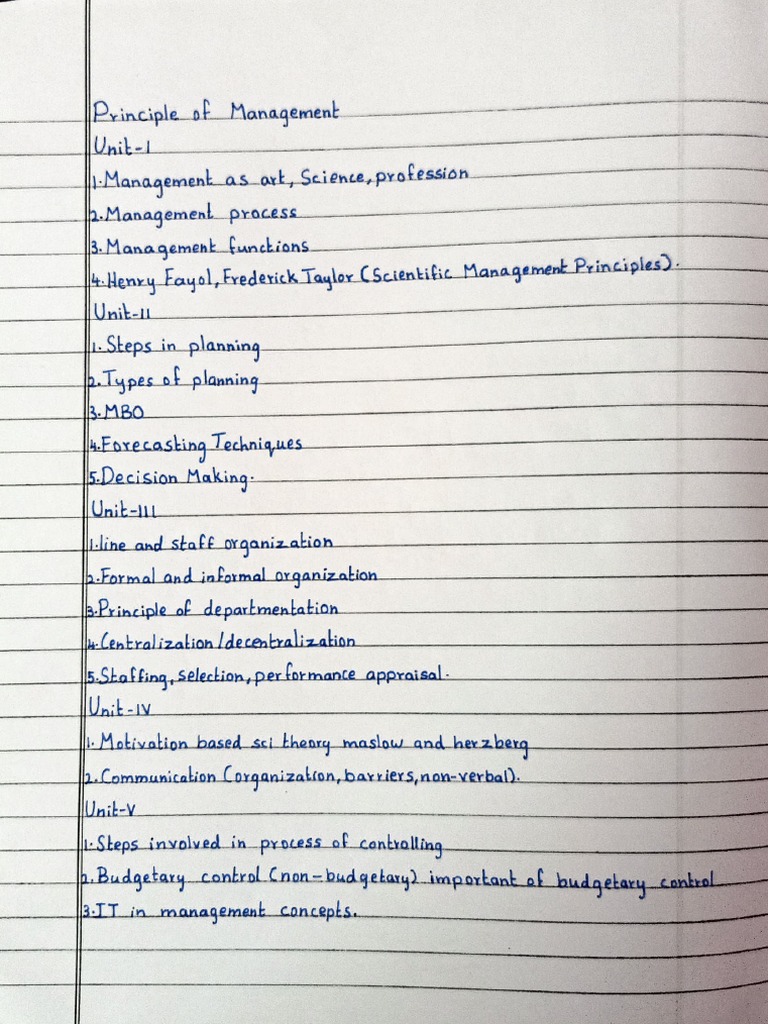 Principle of Management
Unit-I
1.Management as art, Science, profession
2.Management process
3.Management functions
4.Henry Fayol, Frederick Taylor (Scientific Management Principles).
Unit-II
1.Steps in planning
2.Types of planning
3.MBO
4.Forecasting Techniques
5.Decision Making.
Unit-III
1.line and staff organization
2.Formal and informal organization
3.Principle of departmentation
4.Centralization/decentralization
5.Staffing, selection, performance appraisal.
Unit-IV
1.Motivation based sci theory maslow and herzberg
2.Communication (organization, barriers, non-verbal).
Unit-V
1.Steps involved in process of controlling
2.Budgetary control (non-budgetary) important of budgetary control
3.IT in management concepts.